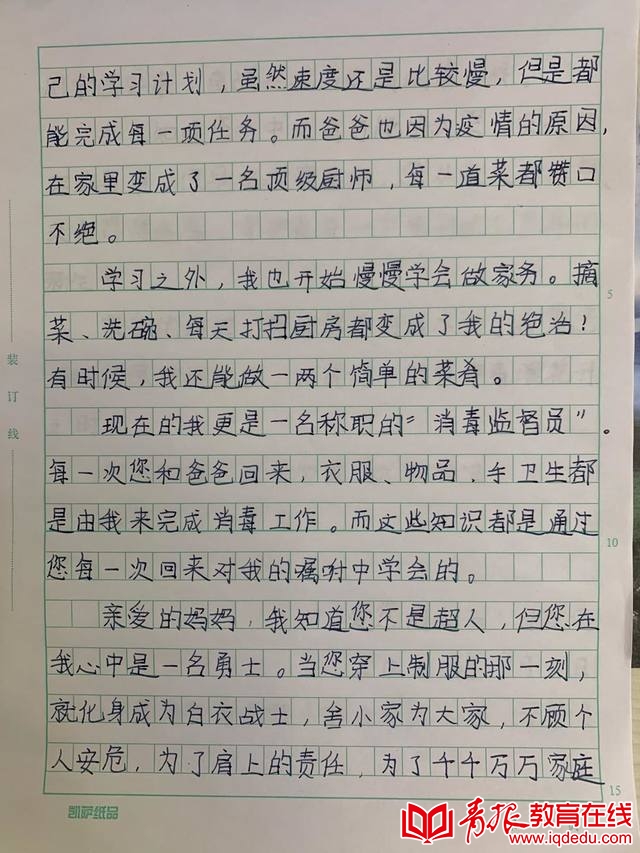 己的学习计划，虽然速度还是比较慢，但是都
能完成每一项任务。而爸爸也因为疫情的原因，
在家里变成了一名顶级厨师，每一道菜都赞口
不绝。
学习之外，我也开始慢慢学会做家务。摘
菜、洗碗、每天打扫厨房都变成了我的绝活！
有时候，我还能做一两个简单的菜肴。
现在的我更是一名称职的“消毒监督员”。
每一次您和爸爸回来，衣服、物品、手卫生都
是由我来完成消毒工作。而这些知识都是通过
您每一次回来对我的嘱咐中学会的。
亲爱的妈妈，我知道您不是超人，但您在
我心中是一名勇士。当您穿上制服的那一刻，
就化身成为白衣战士，舍小家为大家，不顾个
人安危，为了肩上的责任，为了千千万万家庭
装订线
5
10
15
凯萨纸品
青报教育在线
www.iqdedu.com